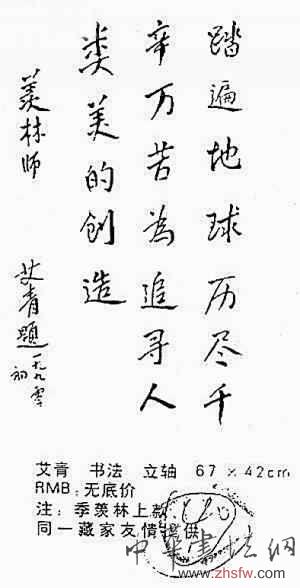 踏遍地球历尽千
辛万苦為追寻人
类美的创造
羡林师
艾青题一九九零
初
艾青 书法 立轴 67×42cm
RMB:无底价
注:季羡林上款
同一藏家友情提供
中华书法网
www.zhsfw.com